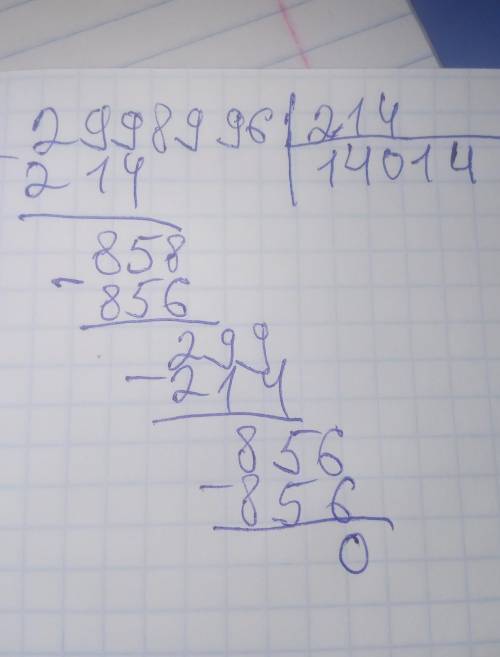 2998996 214
- 214 14014
858
- 856
299
- 214
856
- 856
0